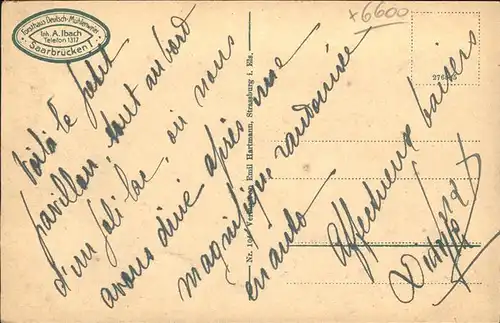 Forsthaus Deutsch-Mühlenweier
Inh. A. Ibach
Telefon 1317
Saarbrücken 1
x6600
Voilà le petit
pavillon, tout au bord
d'un joli lac, où nous
avons diné après une
magnifique randonnée
en auto
Affectueux baisers
Nr. 104 Verlag von Emil Hartmann, Strassburg i. Els.